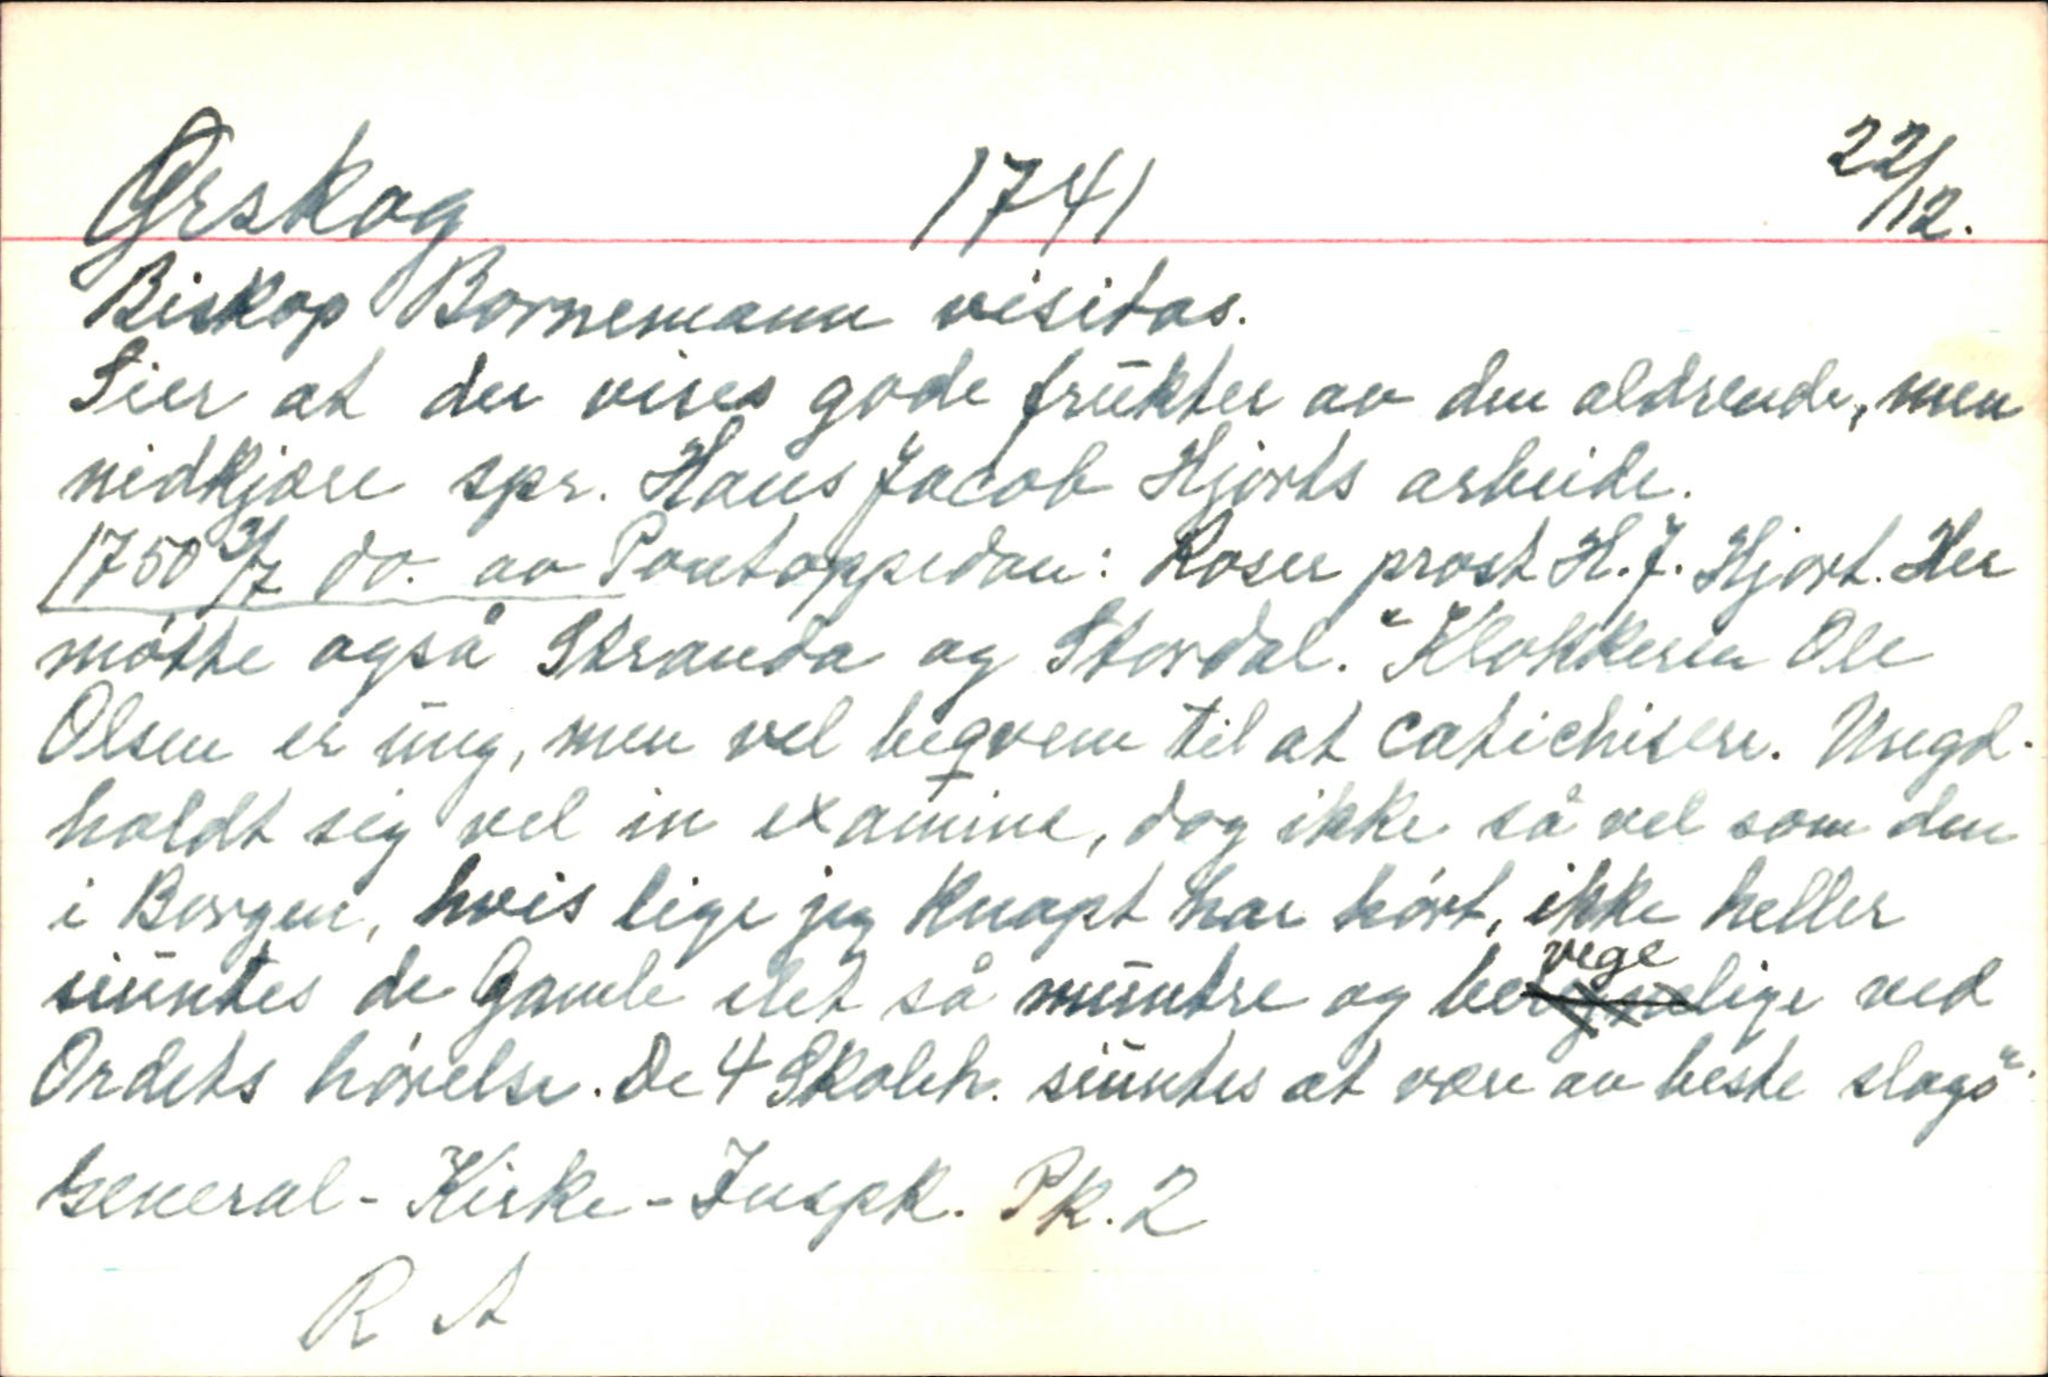 Ørskog 1741 22/12.
Biskop Bornemann visitas.
Sier at der vises gode frukter av den aldrende, men
nidkjære spr. Hans Jacob Hjorts arbeide.
1750 3/7 do. av Pontoppidan: Roser prost H.J. Hjort. Her
møtte også Stranda og Stordal. "Klokkeren Ole
Olsen er ung, men vel beqvem til at catichisere. Ungd.
holdt sig vel in examine, dog ikke så vel som den
i Borgen, hvis lige jeg knapt har hørt, ikke heller
siuntes de Gamle slet så muntre og bevegelige ved
Ordets hørelse. De 4 Skoleh. siuntes at være av beste slags".
General-Kirke-Inspk. Pk. 2
R A